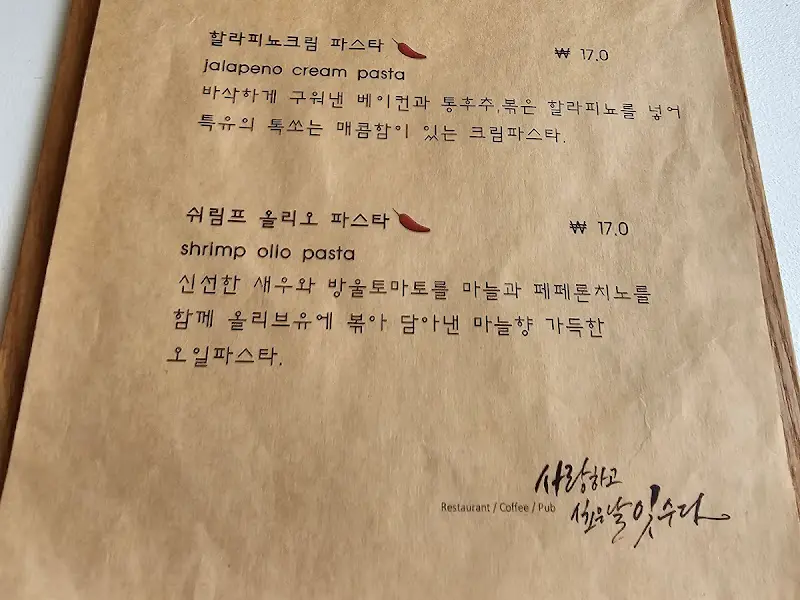 할라피뇨크림 파스타
₩ 17.0
jalapeno cream pasta
바삭하게 구워낸 베이컨과 통후추,볶은 할라피뇨를 넣어
특유의 톡쏘는 매콤함이 있는 크림파스타.
쉬림프 올리오 파스타
₩ 17.0
shrimp olio pasta
신선한 새우와 방울토마토를 마늘과 페페론치노를
함께 올리브유에 볶아 담아낸 마늘향 가득한
오일파스타.
사랑하고
Restaurant / Coffee / Pub
싶은날 잇수다